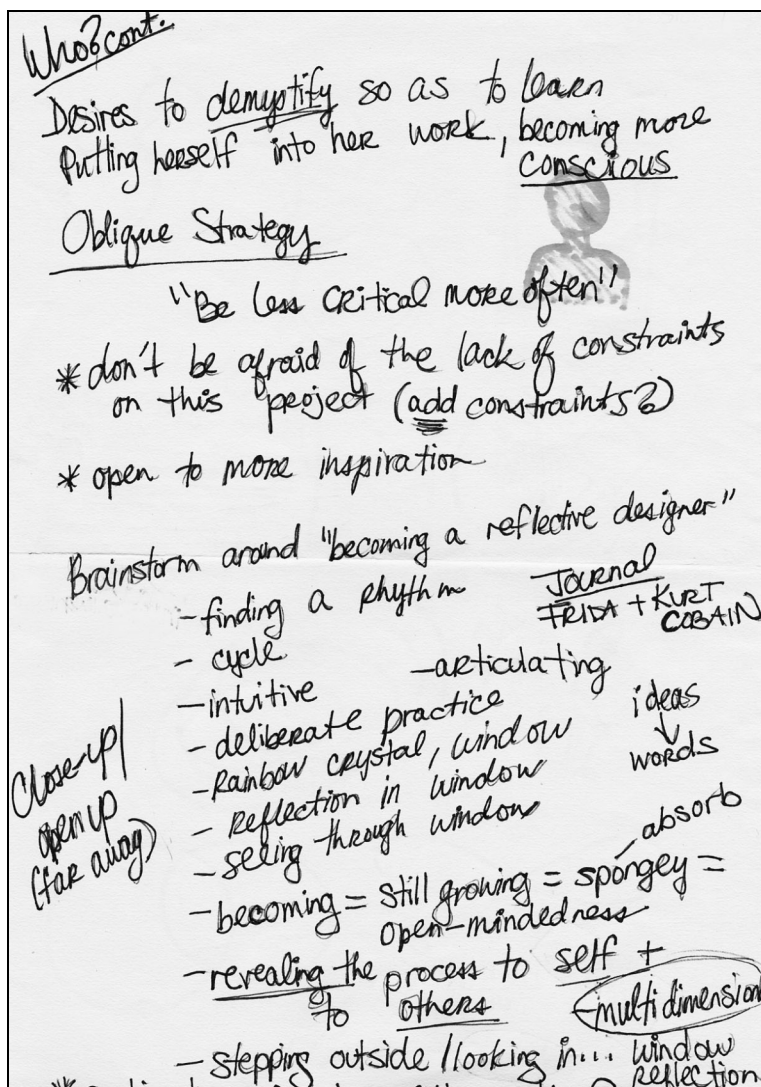 Who? cont.
Desires to demystify so as to learn
Putting herself into her work, becoming more
conscious
Oblique Strategy
"Be less critical more often"
* don't be afraid of the lack of constraints
on this project (add constraints?)
* open to more inspiration
Brainstorm around "becoming a reflective designer"
- finding a rhythm
Journal
FRIDA + KURT
COBAIN
- cycle
- articulating
- intuitive
ideas
↓
words
- deliberate practice
- Rainbow crystal, window
- Reflection in window
- seeing through window
Close-up/
open up
(far away)
absorb
- becoming = still growing = spongey =
open-mindedness
- revealing the process to self +
to others
- multidimension
- stepping outside/looking in... window
reflection